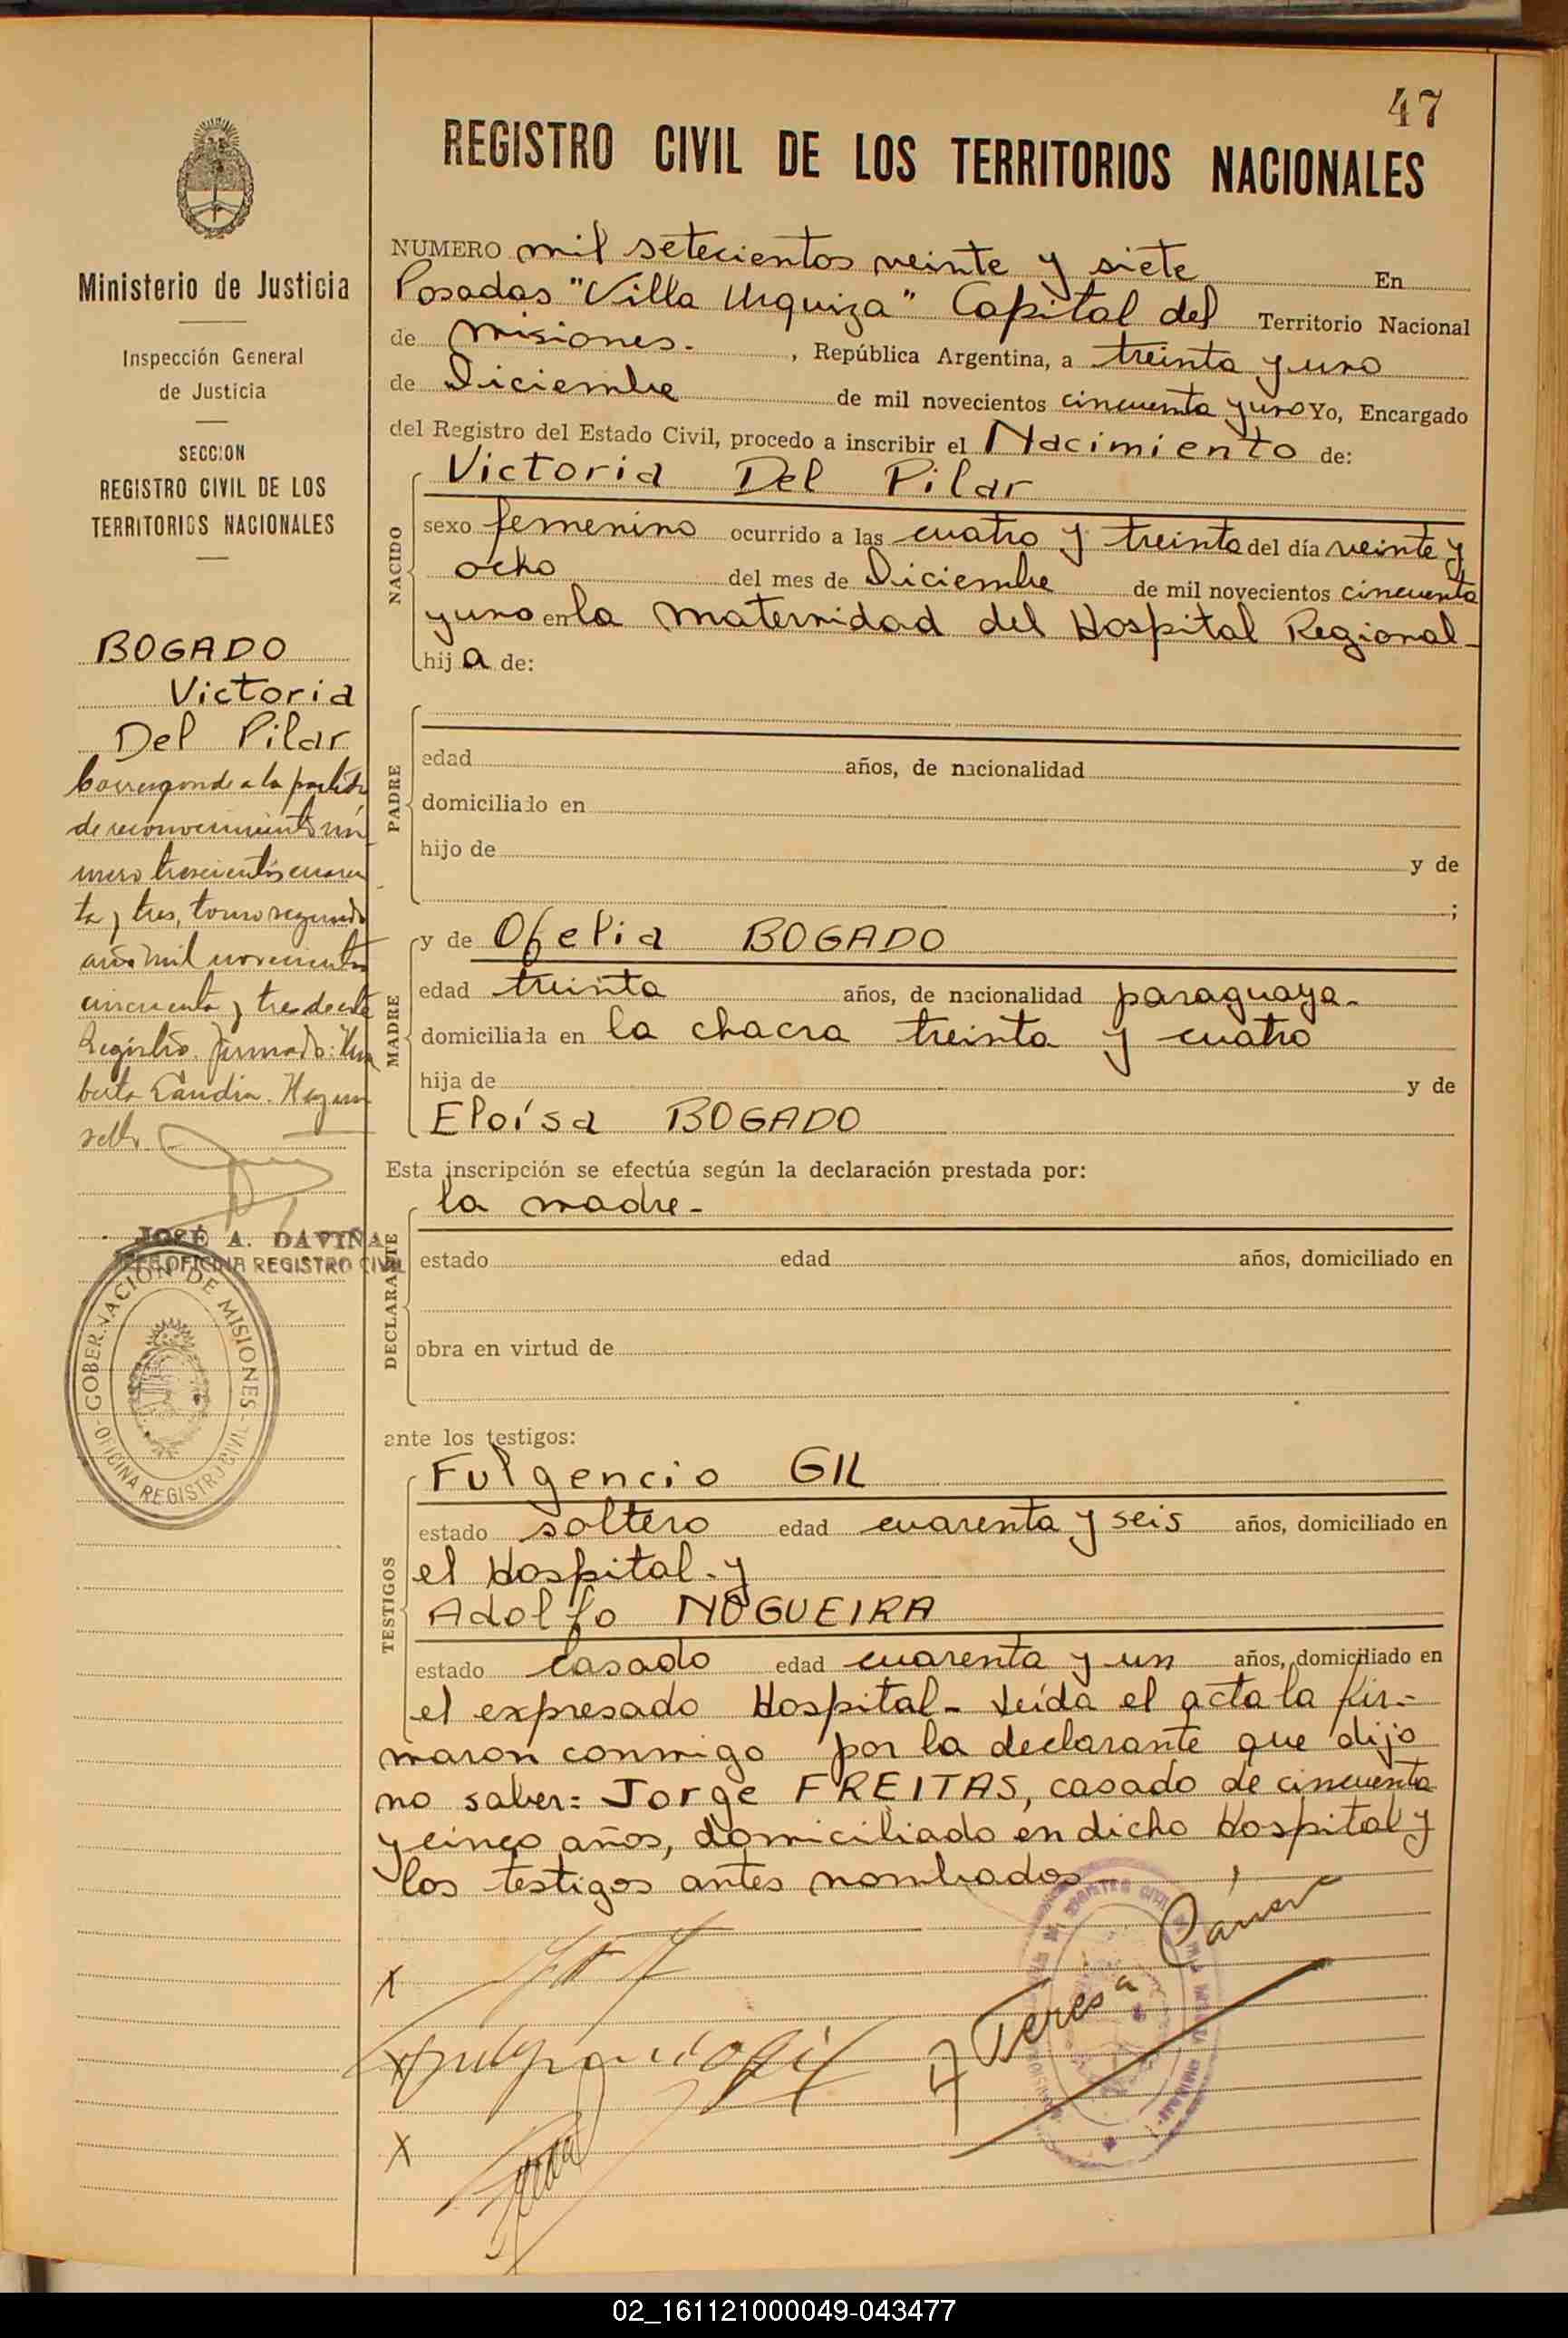 47
REGISTRO CIVIL DE LOS TERRITORIOS NACIONALES
Ministerio de Justicia
Inspección General
de Justicia
SECCION
REGISTRO CIVIL DE LOS
TERRITORIOS NACIONALES
BOGADO
Victoria
Del Pilar
Corresponde a la partida
de reconocimiento nú
mero trescientos cuaren
ta y tres, tomo segundo
año mil novecientos
cincuenta y tres de este
Registro. Firmado: Um
berto Candia. Hay un
sello
JOSÉ A. DAVIÑA
JEFE OFICINA REGISTRO CIVIL
GOBERNACION DE MISIONES
OFICINA REGISTRO CIVIL
NUMERO mil setecientos veinte y siete En
Posadas "Villa Urquiza" Capital del Territorio Nacional
de Misiones.- , República Argentina, a treinta y uno
de Diciembre de mil novecientos cincuenta y uno Yo, Encargado
del Registro del Estado Civil, procedo a inscribir el Nacimiento de:
NACIDO
Victoria Del Pilar
sexo femenino ocurrido a las cuatro y treinta del día veinte y
ocho del mes de Diciembre de mil novecientos cincuenta
y uno en la Maternidad del Hospital Regional-
hij a de:
PADRE
edad años, de nacionalidad
domiciliado en
hijo de y de
;
MADRE
y de Ofelia BOGADO
edad treinta años, de nacionalidad paraguaya.-
domiciliada en la chacra treinta y cuatro
hija de y de
Eloísa BOGADO
Esta inscripción se efectúa según la declaración prestada por:
DECLARANTE
la madre-
estado edad años, domiciliado en
obra en virtud de
ante los testigos:
TESTIGOS
Fulgencio GIL
estado soltero edad cuarenta y seis años, domiciliado en
el Hospital.- y
Adolfo NOGUEIRA
estado Casado edad cuarenta y un años, domiciliado en
el expresado Hospital- Leída el acta la fir-
maron conmigo por la declarante que dijo
no saber: Jorge FREITAS, casado de cincuenta
y cinco años, domiciliado en dicho Hospital y
los testigos antes nombrados
X
X Fulgencio Gil
X
Teresa
02_161121000049-043477